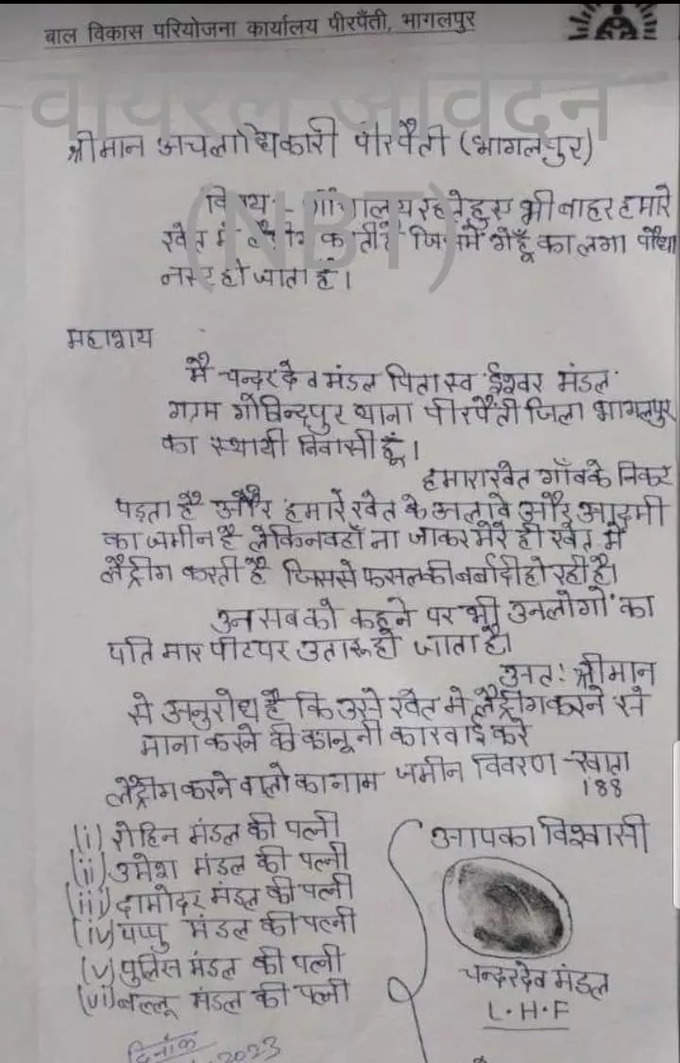 बाल विकास परियोजना कार्यालय पीरपैंती, भागलपुर
वायरल आवेदन
(NBT)
श्रीमान अचलाधिकारी पीरपैती (भागलपुर)
विषय:- शौचालय रहते हुए भी बाहर हमारे
खेत में लैट्रीग करती है जिसमें गेहूँ का लगा पौधा
नस्ट हो जाता है।
महाशय
मै चन्दरदेव मंडल पिता स्व ईश्वर मंडल
गराम गोविन्दपुर थाना पीरपैंती जिला भागलपुर
का स्थायी निवासी हूँ।
हमारा खेत गाँव के निकट
पड़ता है और हमारे खेत के अलावे और आदमी
का जमीन है लेकिन वहाँ ना जाकर मेरे ही खेत में
लैट्रीग करती है जिससे फसल की बर्बादी हो रही है।
उन सब को कहने पर भी उनलोगो का
पति मार पीट पर उतारू हो जाता है।
अतः श्रीमान
से अनुरोध है कि उसे खेत मे लैट्रीग करने से
माना करने की कानूनी कारवाई करे
लैट्रीग करने वालो का नाम जमीन विवरण - खाता
188
(i) रोहिन मंडल की पत्नी
(ii) उमेश मंडल की पत्नी
(iii) दामोदर मंडल की पत्नी
(iv) पप्पु मंडल की पत्नी
(v) पुलिस मंडल की पत्नी
(vi) बल्लू मंडल की पत्नी
आपका विश्वासी
चन्दरदेव मंडल
L.H.F
दिनांक
2023